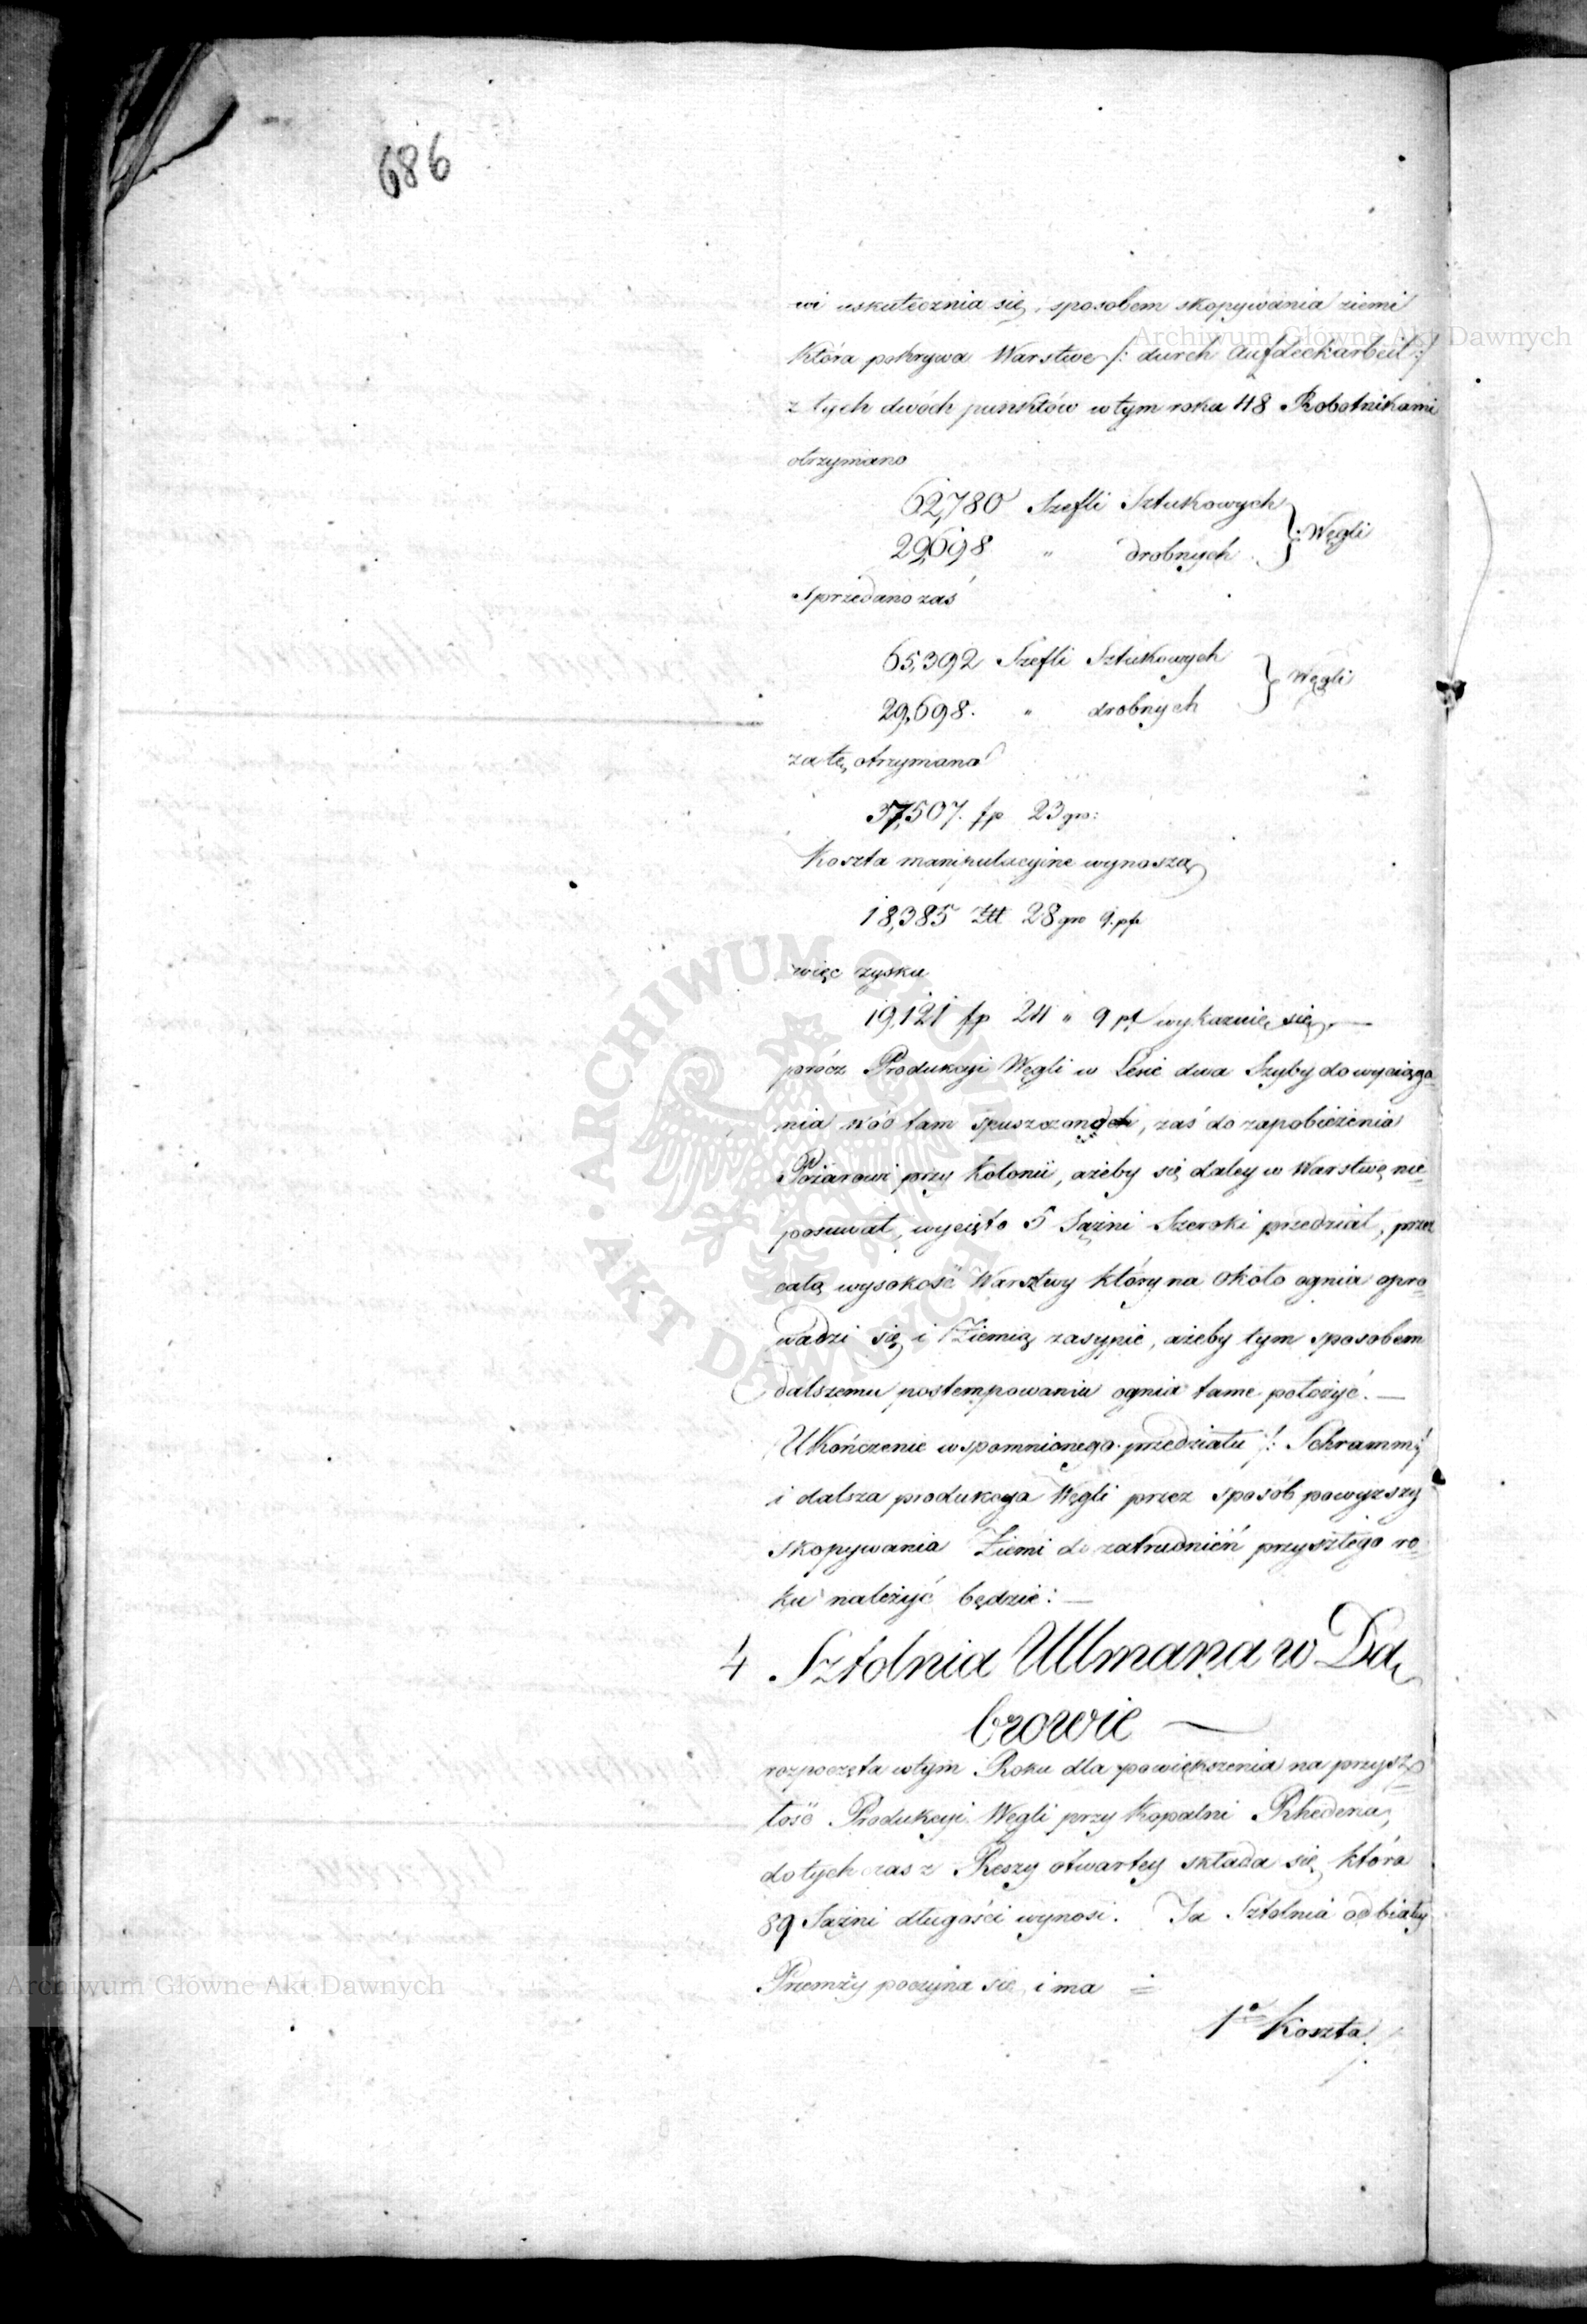 686
wi uskutecznia się, sposobem skopywania ziemi
Która pokrywa Warstwe /: durch Aufdeckarbeit :/
z tych dwóch punktów w tym roku 48 Robotnikami
otrzymano
62,780 Szefli Sztukowych
29,698 " drobnych } Węgli
Sprzedano zaś
65,392 Szefli Sztukowych
29,698. " drobnych } Węgli
za tę otrzymano
37,507. fp 23 gro:
Koszta manipulacyine wynoszą
18,385 Ztt 28 gro 9. pf
więc zysku
19,121 fp 24 " 9 pf wykazuie się —
prócz Produkcyi Węgli w Lesie dwa Szyby do wyciąga=
nia wód tam spuszczonych, zaś do zapobieżenia
Pożarowi przy Kolonii, ażeby się daley w Warstwę nie=
posuwał, wycięto 5 Sążni Szeroki przedział, przez
całą wysokość Warsztwy który na około ognia opro=
wadzi się i Ziemią zasypie, ażeby tym sposobem
dalszemu postempowaniu ognia tame położyć. —
Ukończenie wspomnionego przedziału /: Schramm :/
i dalsza produkcya Węgli przez sposób powyższy
skopywania Ziemi do zatrudnień przyszłego ro=
ku należyć będzie: —
4 Sztolnia Ullmana w Dą
browie —
rozpoczęta w tym Roku dla powiększenia na przysz=
łość Produkcyi Węgli przy Kopalni Rhedena,
dotychczas z Reszy otwartey składa się, która
89 Sążni długości wynosi. Ta Sztolnia od białey
Przemzy poczyna się, i ma =
1° Koszta
Archiwum Główne Akt Dawnych
Archiwum Główne Akt Dawnych
ARCHIWUM GŁÓWNE AKT DAWNYCH